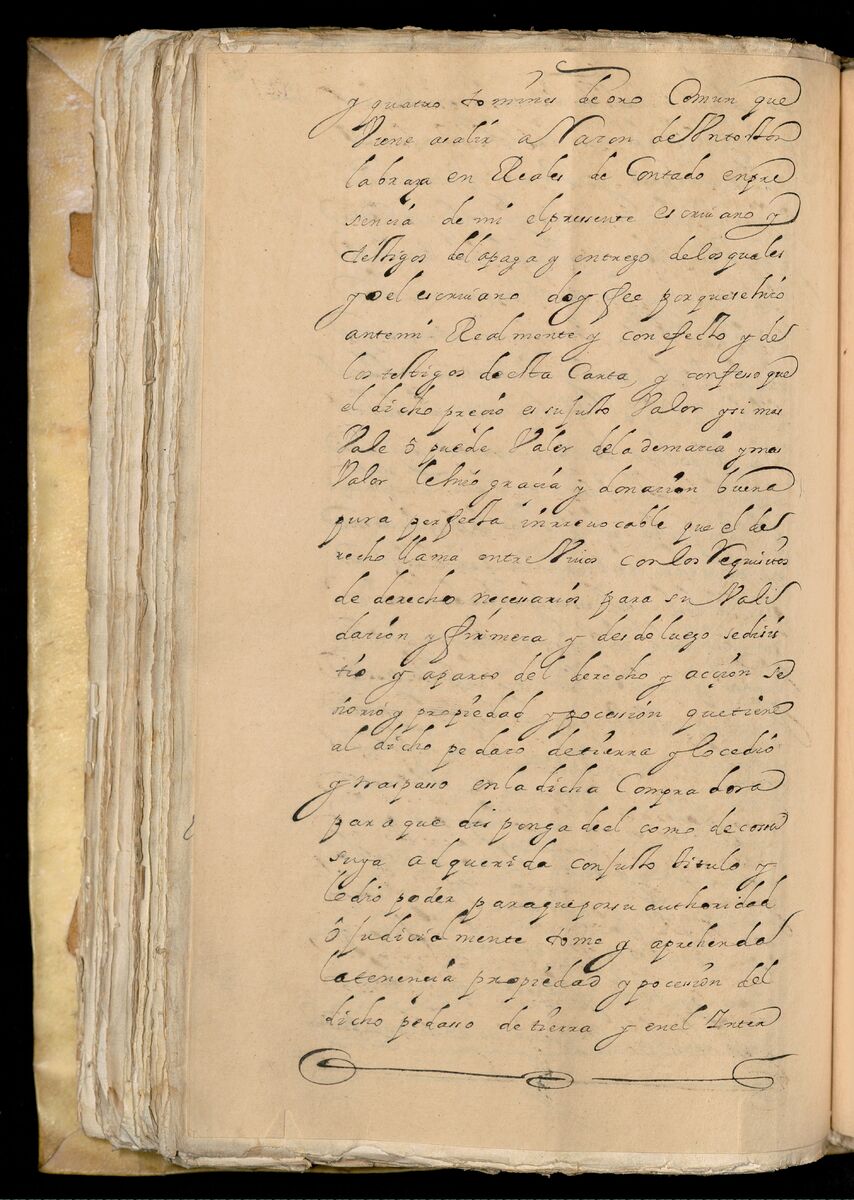 y quatro tomines de oro Comun que
Viene asalir a Razon de Untoston
labraza en Reales de Contado enpre
sencia de mi elpressente escriuano y
testigos delapaga y entrego delosquales
yo el escriuano doy fee porquesehiso
antemi Realmente y con efecto y de
los testigos de esta Carta, y confeso que
el dicho precio es sujusto Valor ysi mas
Vale ô puede Valer dela demacia ymas
Valor lehiso gracia y donacion buena
pura perfecta inrreuocable que el de
recho llama entre Viuos con los Requisitos
de derecho necesarios para su Vali
dacion y firmeca y desdeluego sedisis
tio y aparto del derecho y acçion se
ñorio y propiedad y pocession quetiene
al dicho pedaco detierra y lo cedio
y traspasso en la dicha Compradora
para que disponga del como de cossa
suya adquerida conjusto titulo y
ledio poder paraqueporsu authoridad
ô Judicialmente tome y aprehenda
latenencia propiedad y pocession del
dicho pedasso de tierra y enel Inter